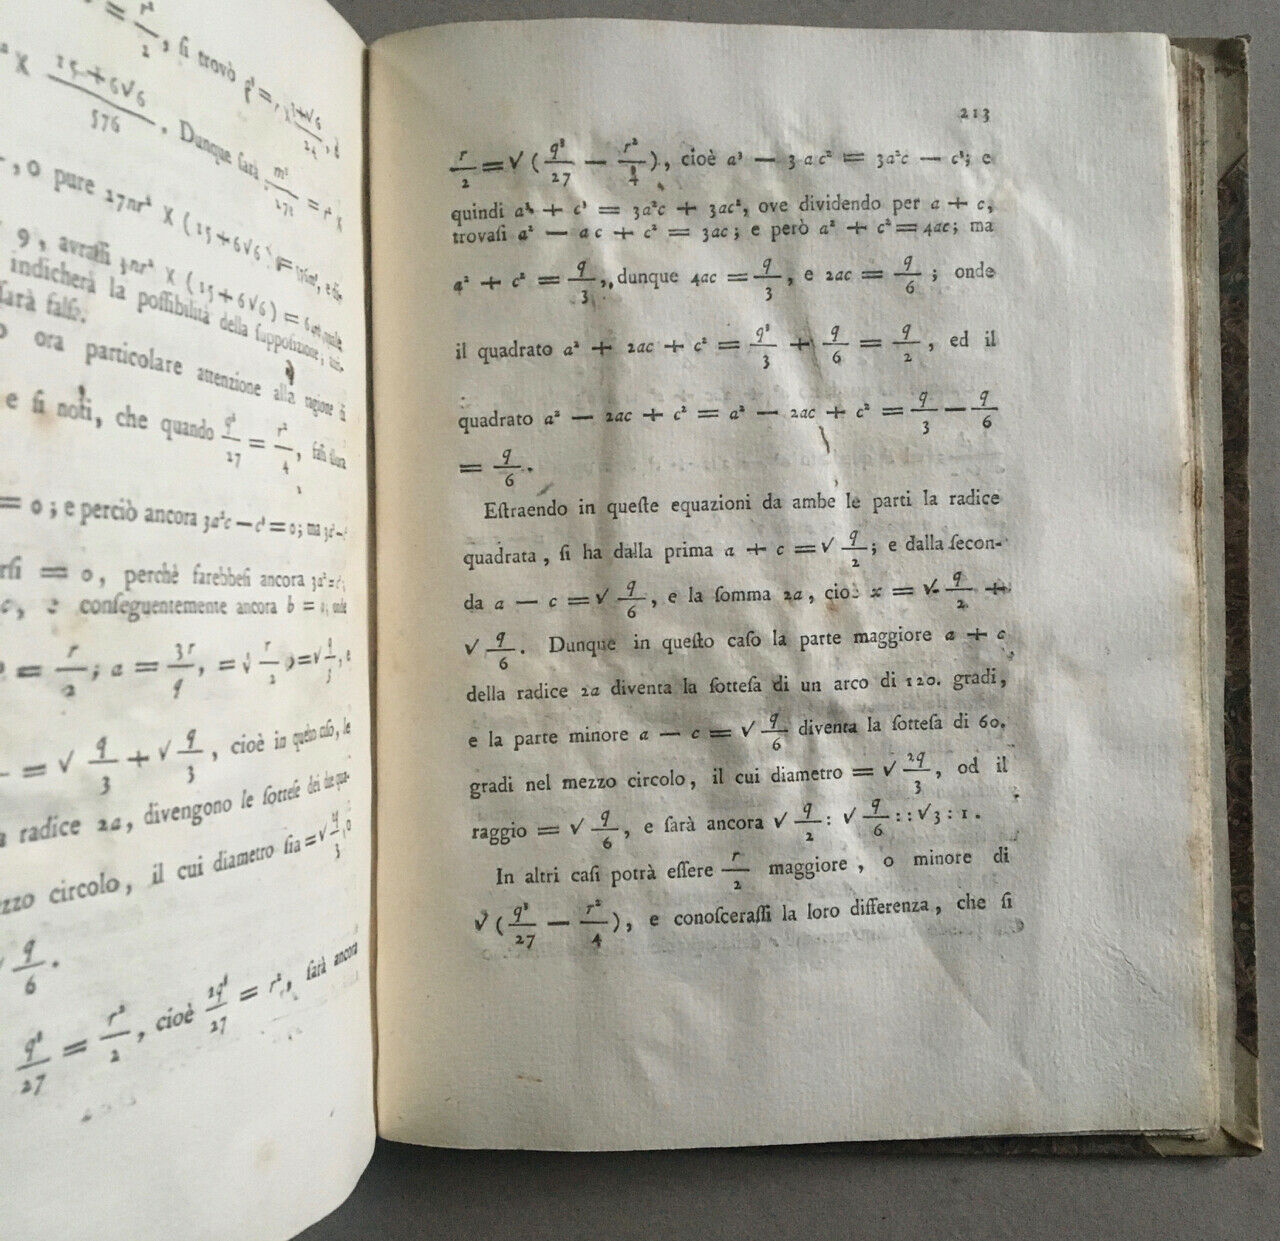 = r²/2, ſi trovò
15+6√6/576. Dunque ſarà m²
, o pure 27nr² × (15+6√6
9, avraſſi 3nr² × (15+6√6) =
indicherà la poſſibilità della ſuppoſizione;
ſarà falſo.
ora particolare attenzione alla ragione di
e ſi noti, che quando q³/27 = r²/4,
= 0; e perciò ancora 3a²c — c³ = 0; ma
= 0, perchè farebbeſi ancora
c, e conſeguentemente ancora b =
= r/2; a = 3r/q, =
= √ q/3 + √ q/3, cioè in queſto caſo, le
radice 2a, divengono le ſotteſe dei due
mezzo circolo, il cui diametro ſia = √ q/3, o
√ q/6.
q³/27 = r²/2, cioè 2q³/27 = r², ſarà ancora
213
r/2 = √ (q³/27 — r²/4), cioè a³ — 3 ac² = 3a²c — c³; e
quindi a³ + c³ = 3a²c + 3ac², ove dividendo per a + c,
trovaſi a² — ac + c² = 3ac; e però a² + c² = 4ac; ma
a² + c² = q/3, dunque 4ac = q/3, e 2ac = q/6; onde
il quadrato a² + 2ac + c² = q³/3 + q/6 = q/2, ed il
quadrato a² — 2ac + c² = a² — 2ac + c² = q/3 — q/6
= q/6.
Eſtraendo in queſte equazioni da ambe le parti la radice
quadrata, ſi ha dalla prima a + c = √ q/2; e dalla ſecon-
da a — c = √ q/6, e la ſomma 2a, cioè x = √ q/2 +
√ q/6. Dunque in queſto caſo la parte maggiore a + c
della radice 2a diventa la ſotteſa di un arco di 120. gradi,
e la parte minore a — c = √ q/6 diventa la ſotteſa di 60.
gradi nel mezzo circolo, il cui diametro = √ 2q/3, od il
raggio = √ q/6, e ſarà ancora √ q/2 : √ q/6 : : √3 : 1.
In altri caſi potrà eſſere r/2 maggiore, o minore di
√ (q³/27 — r²/4), e conoſceraſſi la loro differenza, che ſi